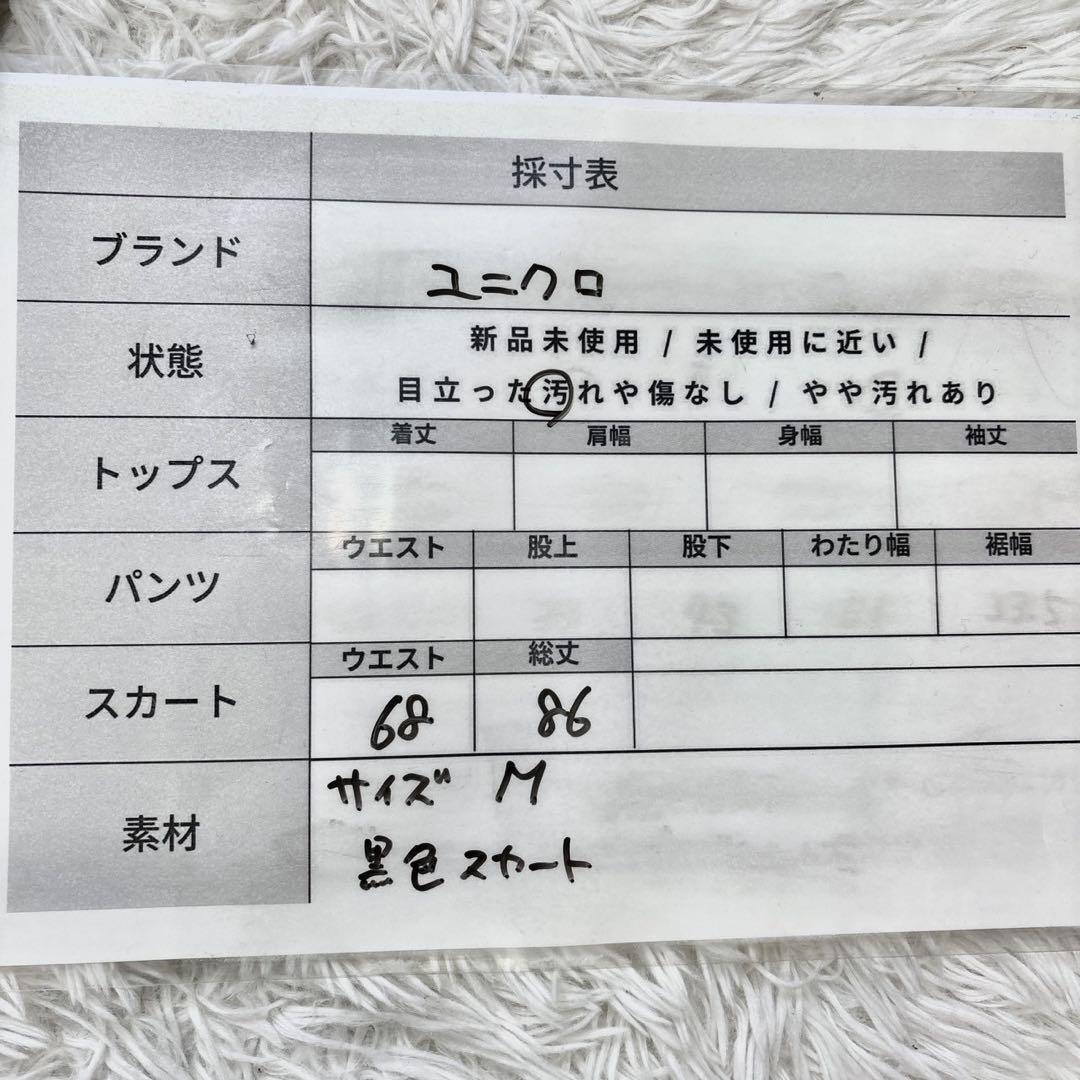 採寸表
ブランド
ユニクロ
状態
新品未使用 / 未使用に近い /
目立った汚れや傷なし / やや汚れあり
トップス
着丈 肩幅 身幅 袖丈
パンツ
ウエスト 股上 股下 わたり幅 裾幅
スカート
ウエスト 総丈
68 86
素材
サイズ M
黒色スカート